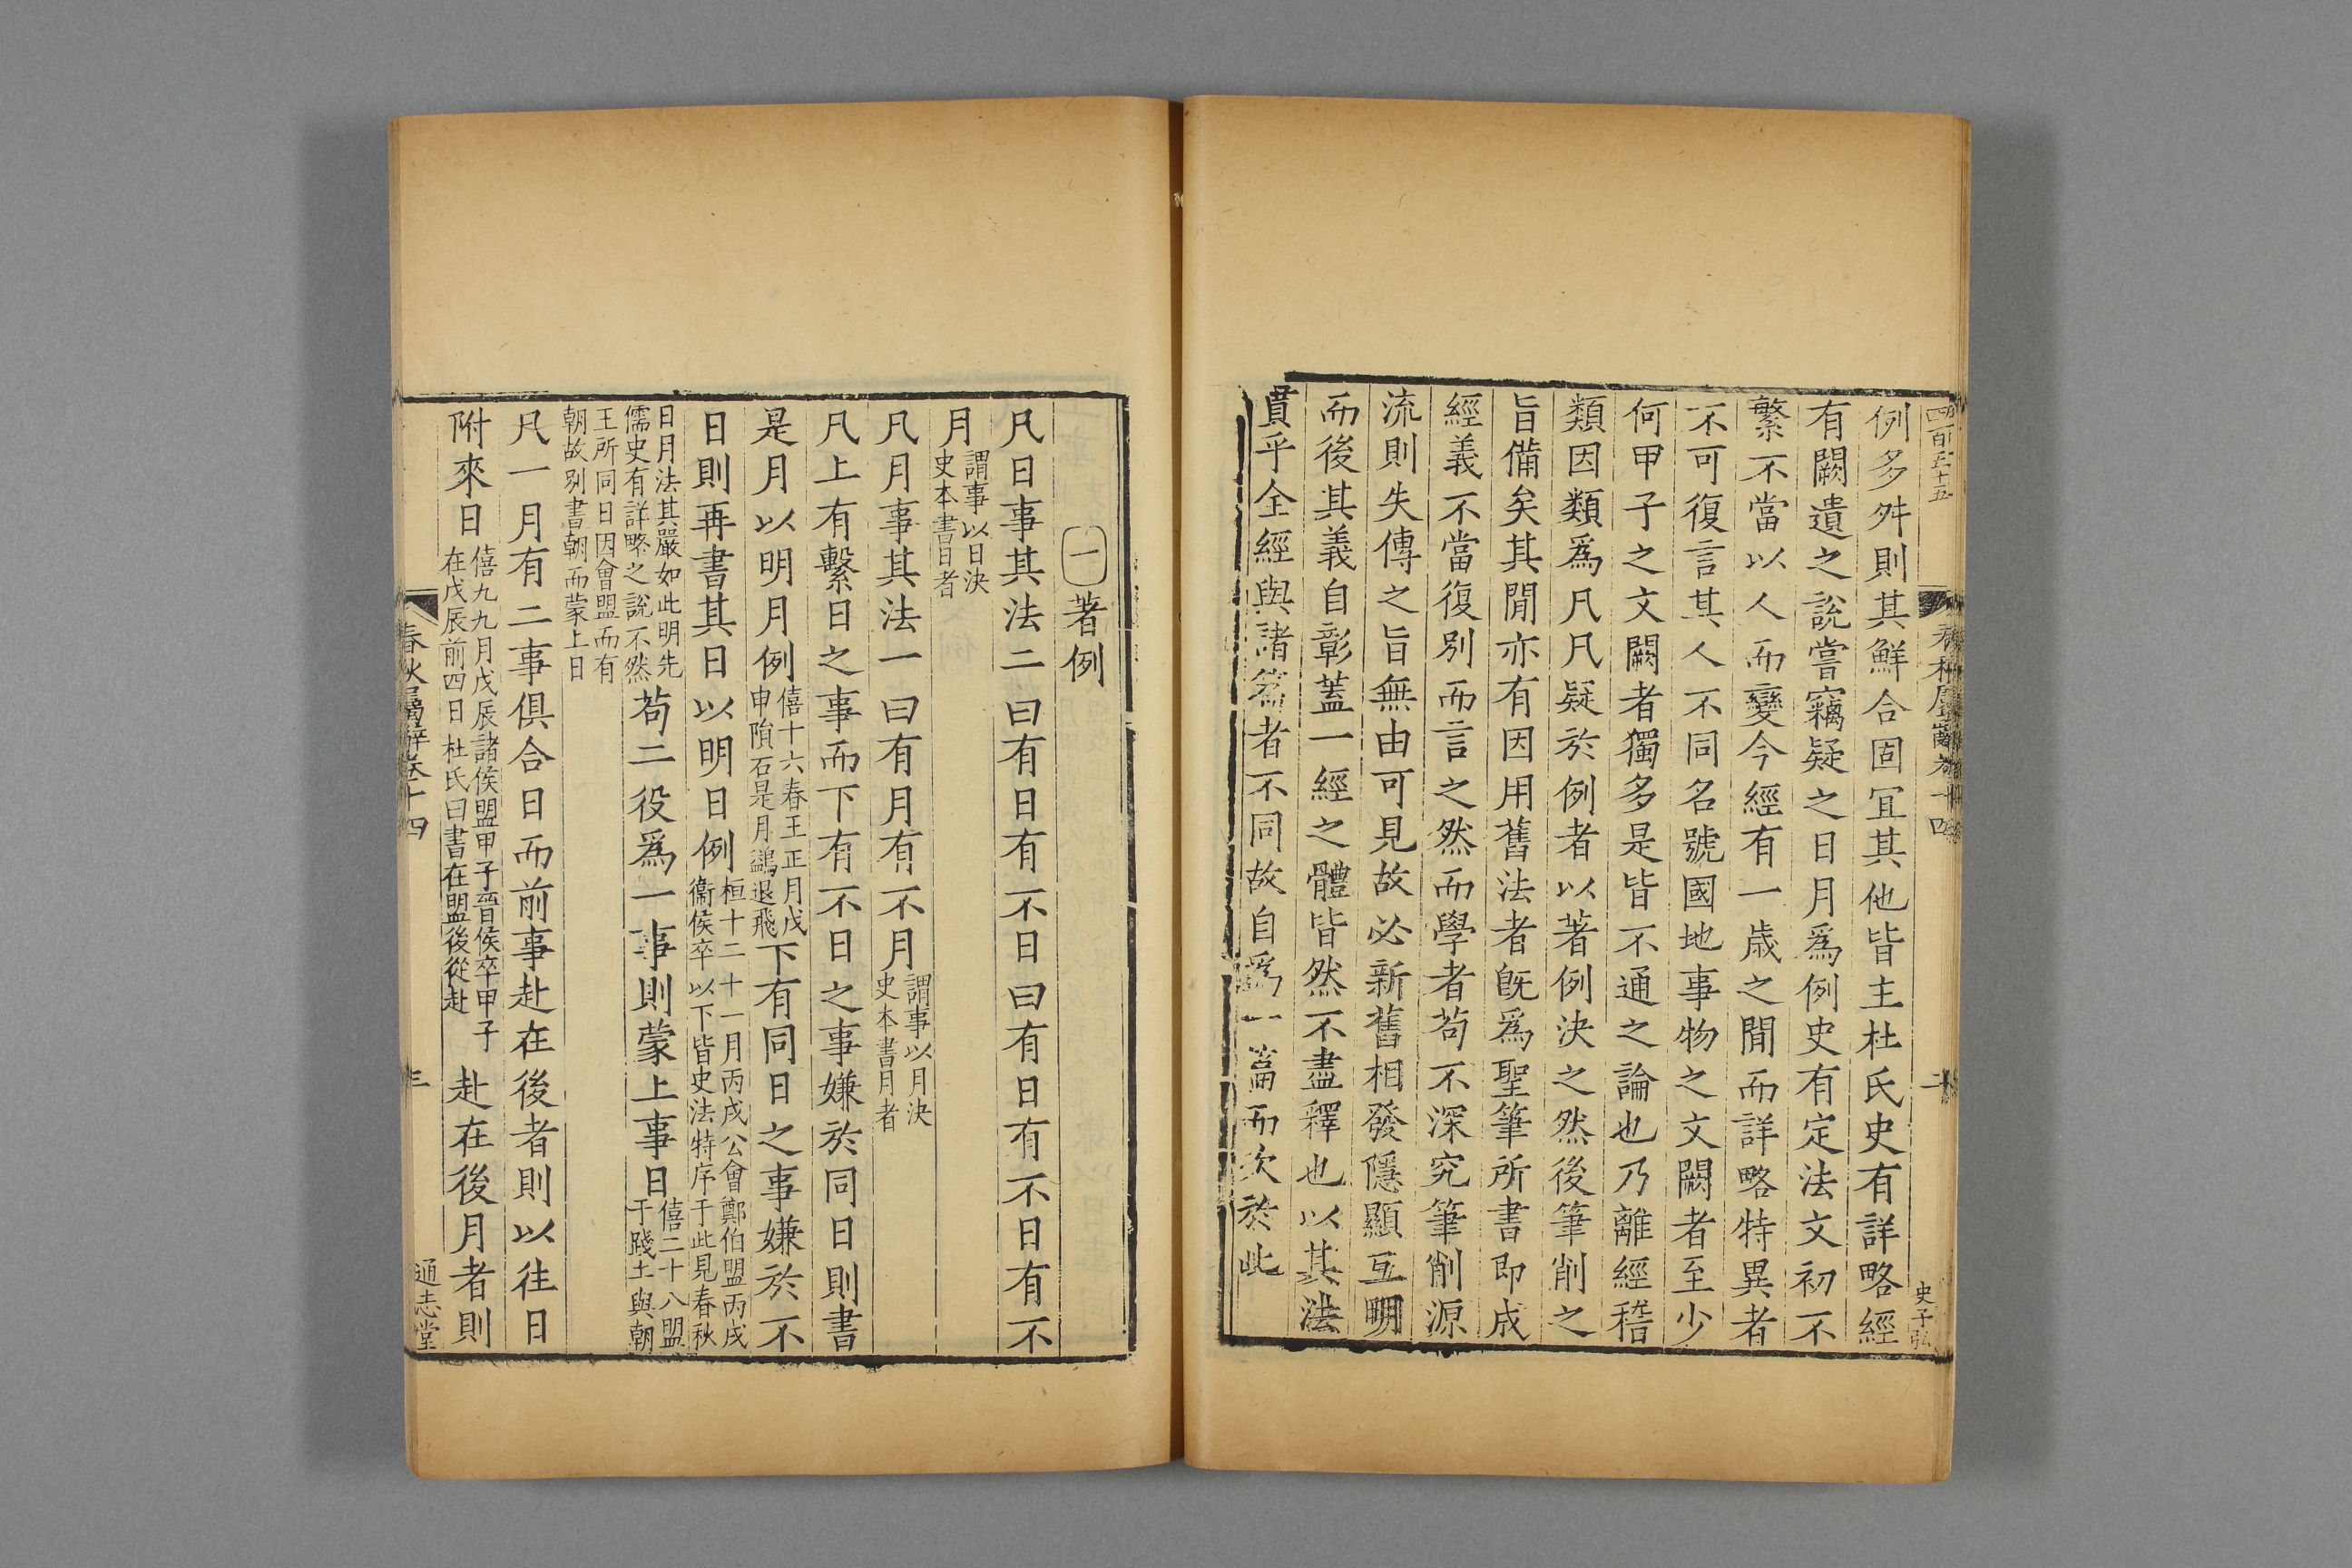 四百五十五
史子弘
例多舛則其鮮合固宜其他皆主杜氏史有詳略經
有闕遺之說嘗竊疑之日月爲例史有定法文初不
繁不當以人而變今經有一歲之閒而詳略特異者
不可復言其人不同名號國地事物之文闕者至少
何甲子之文闕者獨多是皆不通之論也乃離經稽
類因類爲凡凡疑於例者以著例決之然後筆削之
旨備矣其閒亦有因用舊法者旣爲聖筆所書即成
經義不當復別而言之然而學者苟不深究筆削源
流則失傳之旨無由可見故必新舊相發隱顯互明
而後其義自彰蓋一經之體皆然不盡釋也以其法
貫乎全經與諸篇者不同故自爲一篇而次於此
一著例
凡日事其法二曰有日有不日曰有日有不日有不
月謂事以日決
史本書日者
凡月事其法一曰有月有不月謂事以月決
史本書月者
凡上有繫日之事而下有不日之事嫌於同日則書
是月以明月例僖十六春王正月戊
申隕石是月鷁退飛下有同日之事嫌於不
日則再書其日以明日例桓十二十一月丙戌公會鄭伯盟丙戌
衞侯卒以下皆史法特序于此見春秋
日月法其嚴如此明先
儒史有詳略之說不然苟二役爲一事則蒙上事日僖二十八盟
于踐土與朝
王所同日因會盟而有
朝故別書朝而蒙上日
凡一月有二事俱合日而前事赴在後者則以往日
附來日僖九九月戊辰諸侯盟甲子晉侯卒甲子
在戊辰前四日杜氏曰書在盟後從赴赴在後月者則
春秋屬辭卷十四
三
通志堂